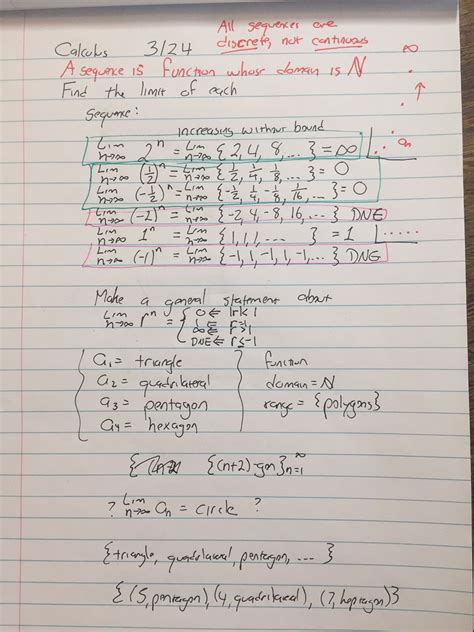 All sequences are
Calculus 3/24 discrete, not continuous
A sequence is function whose domain is ℕ
Find the limit of each
sequence:
increasing without bound
Lim n→∞ 2^n = Lim n→∞ {2, 4, 8, ... } = ∞
Lim n→∞ (1/2)^n = Lim n→∞ {1/2, 1/4, 1/8, ... } = 0
Lim n→∞ (-1/2)^n = Lim n→∞ {-1/2, 1/4, -1/8, 1/16, ... } = 0
Lim n→∞ (-2)^n = Lim n→∞ {-2, 4, -8, 16, ... } DNE
Lim n→∞ 1^n = Lim n→∞ {1, 1, 1, ... } = 1
Lim n→∞ (-1)^n = Lim n→∞ {-1, 1, -1, 1, -1, ... } DNE
∞
an
Make a general statement about
Lim n→∞ r^n = { 0 ⇐ |r|<1
∞ ⇐ r>1
DNE ⇐ r≤-1
a1 = triangle
a2 = quadrilateral
a3 = pentagon
a4 = hexagon
function
domain = ℕ
range = {polygons}
{(n+2)-gon}∞ n=1
? Lim n→∞ an = circle ?
{triangle, quadrilateral, pentagon, ... }
{(5, pentagon), (4, quadrilateral), (7, heptagon)}